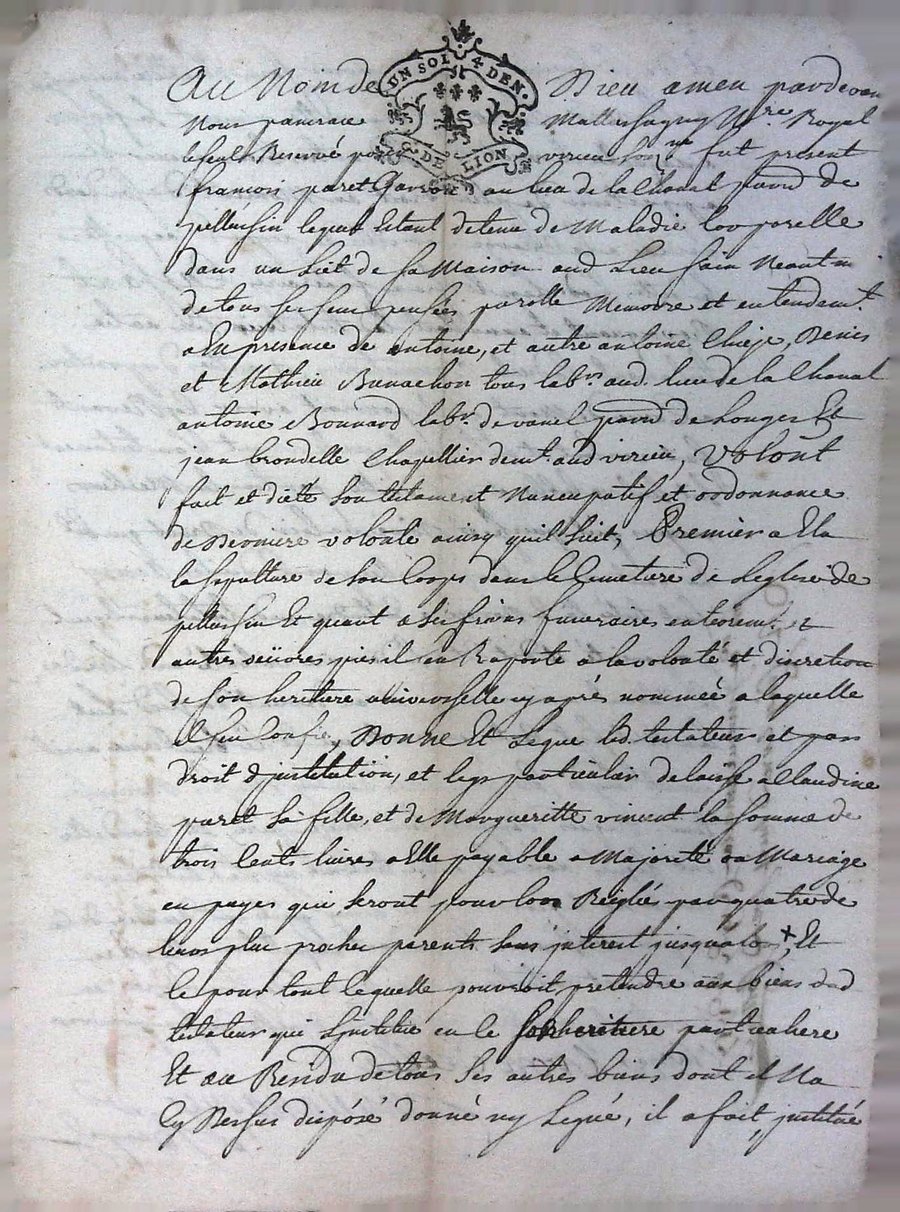 UN SOL 4 DEN.
G. DE LION
Au Nom de Dieu amen pardevan
Nous pancrace Mallassagny Nre Royal
le seul Reservé virieu soussne fut present
françois paret au lieu de la Chanal parrd de
pellussin lequel Estant detenu de Maladie Corporelle
dans un Lict de sa Maison aud Lieu sain Neantm
de tous ses sens pensées parolle Memoire et entendemt
a En presence de antoine, et autre antoine Chieze, Denis
et Mathieu Bunachon tous labrs aud. lieu de la Chanal
antoine Bonnard labr. de vanel parrd de Longes Et
jean brondelle Chapellier demt. aud virieu, Volont
fait et dicté son testament Nuncupatif et ordonnance
de Derniere volonte ainsy quil suit, Premier a Elu
la sepulture de son Corps dans le Cimetiere de Leglise de
pellussin Et quant a ses fraix funeraires enterremt. et
autres œuvres pies il en Raporte a la volonte et discretion
de son heritiere universelle cy après nommée a laquelle
il sen Confie, Donne Et Legue led. testateur et par
droit djnstitution, et legs particulier delaisse a Claudine
paret sa fille, et de Margueritte vincent la somme de
trois Cents livres a Elle payable a Majorité ou Mariage
en payes qui seront pour lors Réiglée par quatre de
leurs plus proches parents sans jnterest jusqualors +, Et
ce pour tout ce quelle pouvroit pretendre aux biens dud
testateur qui Linstitue en ce son heritiere particuliere
Et au Rendu de tous Ses autres biens dont il Na
Cy Dessus disposé donné ny Legué, il a fait, jnstitué